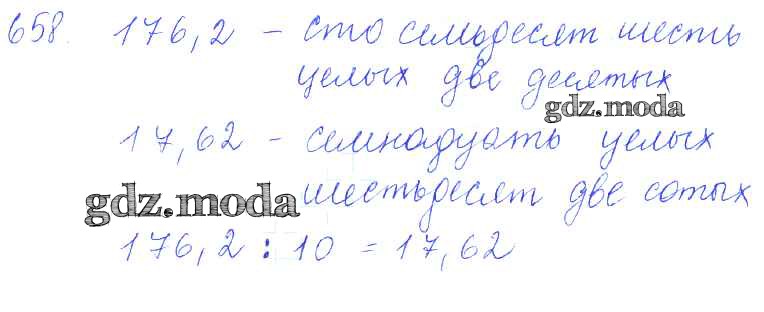 658. 176,2 - сто семьдесят шесть
целых две десятых
gdz.moda
17,62 - семнадцать целых
шестьдесят две сотых
gdz.moda
176,2 : 10 = 17,62